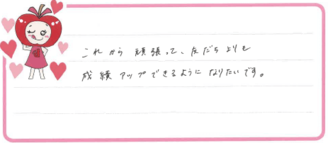 これから頑張って、友だちよりも
成績アップできるようになりたいです。